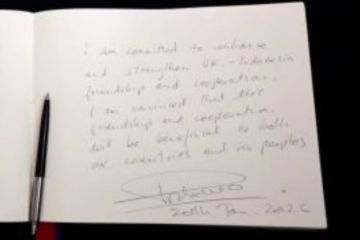 I am committed to enhance
and strengthen UK - Indonesia
friendship and cooperation.
I am convinced that this
friendship and cooperation
will be beneficial to both
our countries and our peoples
20th Jan. 2026